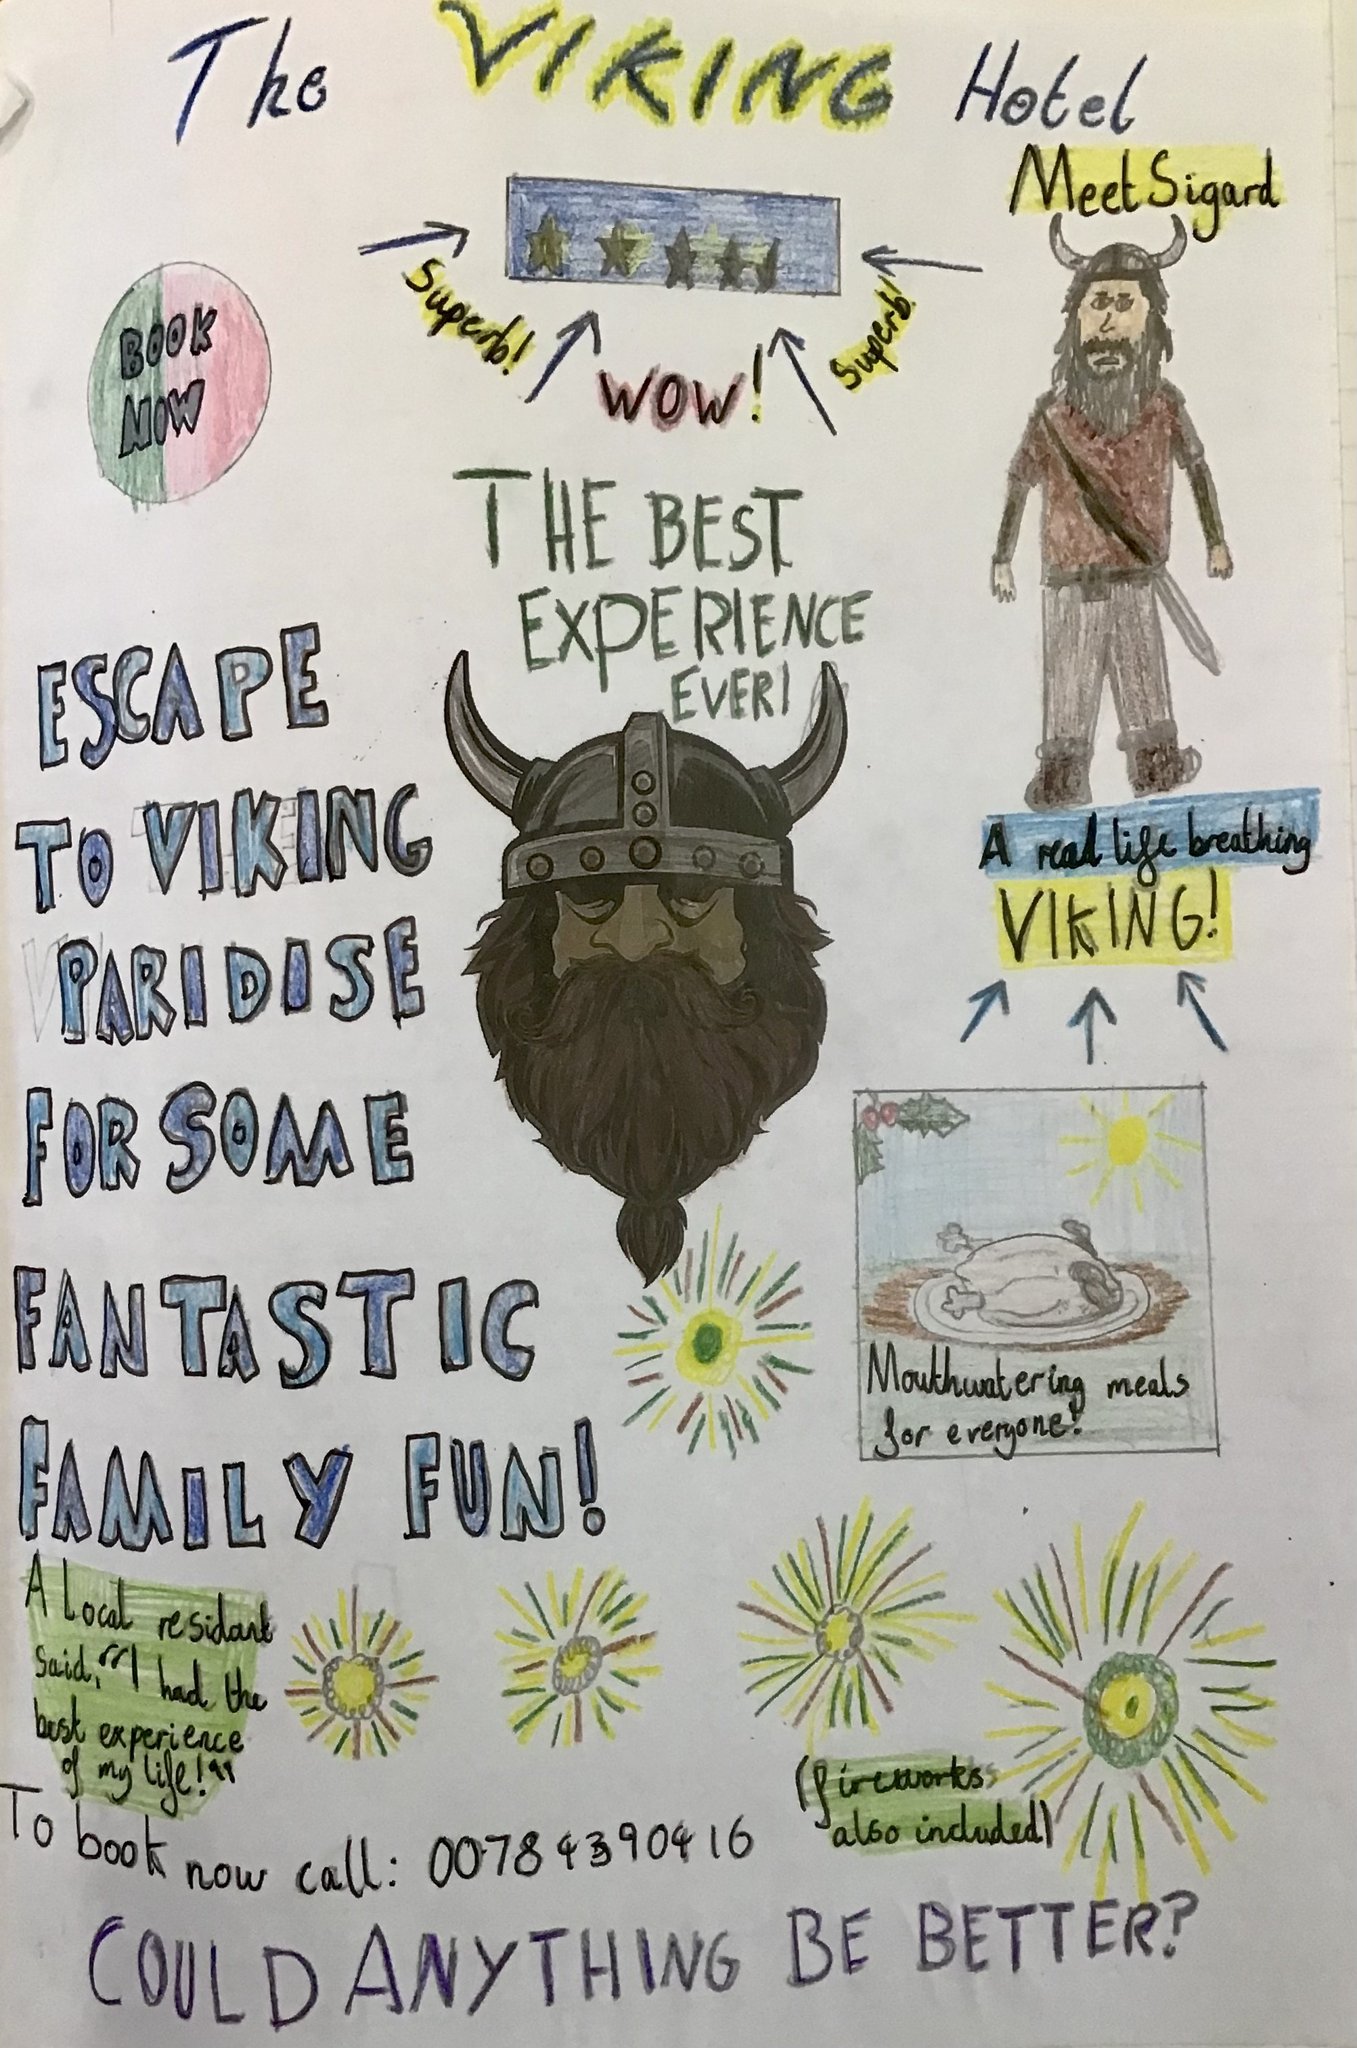 The VIKING Hotel
Meet Sigard
Superb!
Superb!
WOW!
BOOK
NOW
THE BEST
EXPERIENCE
EVER!
ESCAPE
TO VIKING
PARIDISE
FOR SOME
FANTASTIC
FAMILY FUN!
A real life breathing
VIKING!
Mouthwatering meals
for everyone!
A local residant
said, "I had the
best experience
of my life!"
(fireworks
also included)
To book now call: 00784390416
COULD ANYTHING BE BETTER?